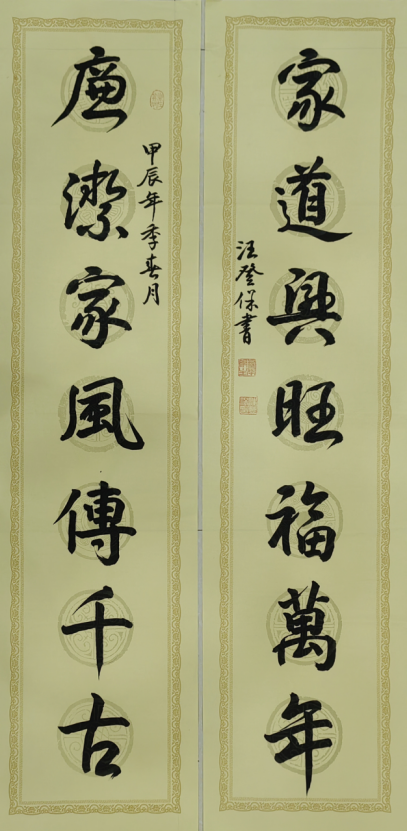 家道興旺福萬年
汪登保書
甲辰年季春月
廉潔家風傳千古